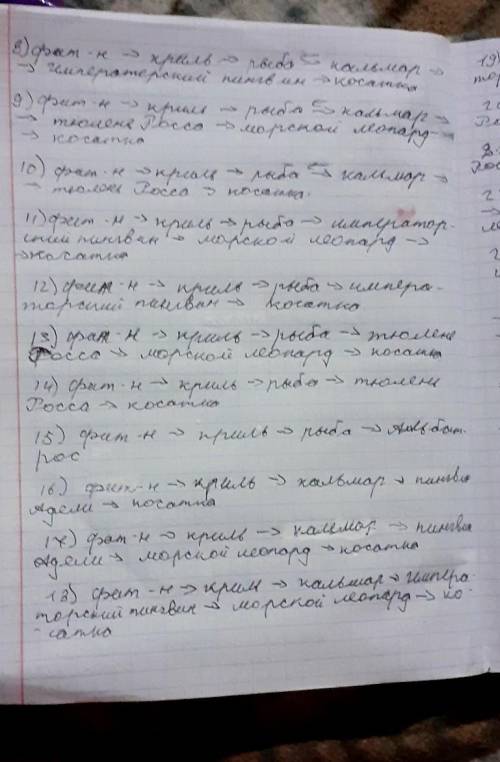 8) фит-н → криль → рыба ⇆ кальмар →
→ императерский пингвин → косатка
9) фит-н → криль → рыба ⇆ кальмар →
→ тюлень Росса → морской леопард →
→ косатка
10) фит-н → криль → рыба ⇆ кальмар →
→ тюлень Росса → косатка.
11) фит-н → криль → рыба → император-
ский пингвин → морской леопард →
→ косатка
12) фит-н → криль → рыба → импера-
торский пингвин → косатка
13) фит-н → криль → рыба → тюлень
Росса → морской леопард → косатка
14) фит-н → криль → рыба → тюлень
Росса → косатка
15) фит-н → криль → рыба → Альбат-
рос
16) фит-н → криль → кальмар → пингвин
Адели → косатка
17) фит-н → криль → кальмар → пингвин
Адели → морской леопард → косатка
18) фит-н → криль → кальмар → импера-
торский пингвин → морской леопард → ко-
-сатка
19)